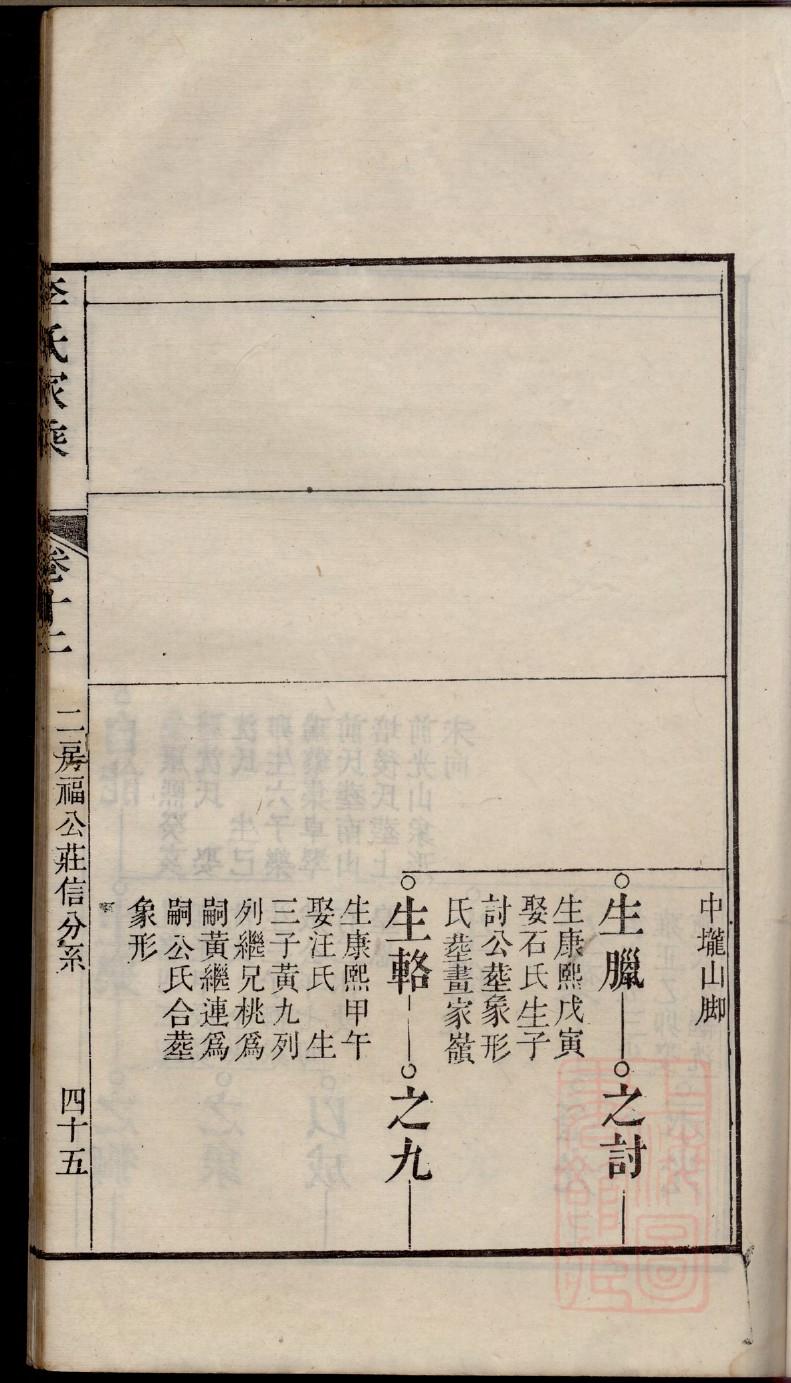 中壠山脚
生臘
之討
生康熙戊寅
娶石氏生子
討公塟象形
氏塟畫家嶺
生輅
之九
生康熙甲午
娶汪氏 生
三子黃九列
列繼兄桃爲
嗣黃繼連爲
嗣公氏合塟
象形
李氏家乘
卷十二
二房福公莊信分系
四十五